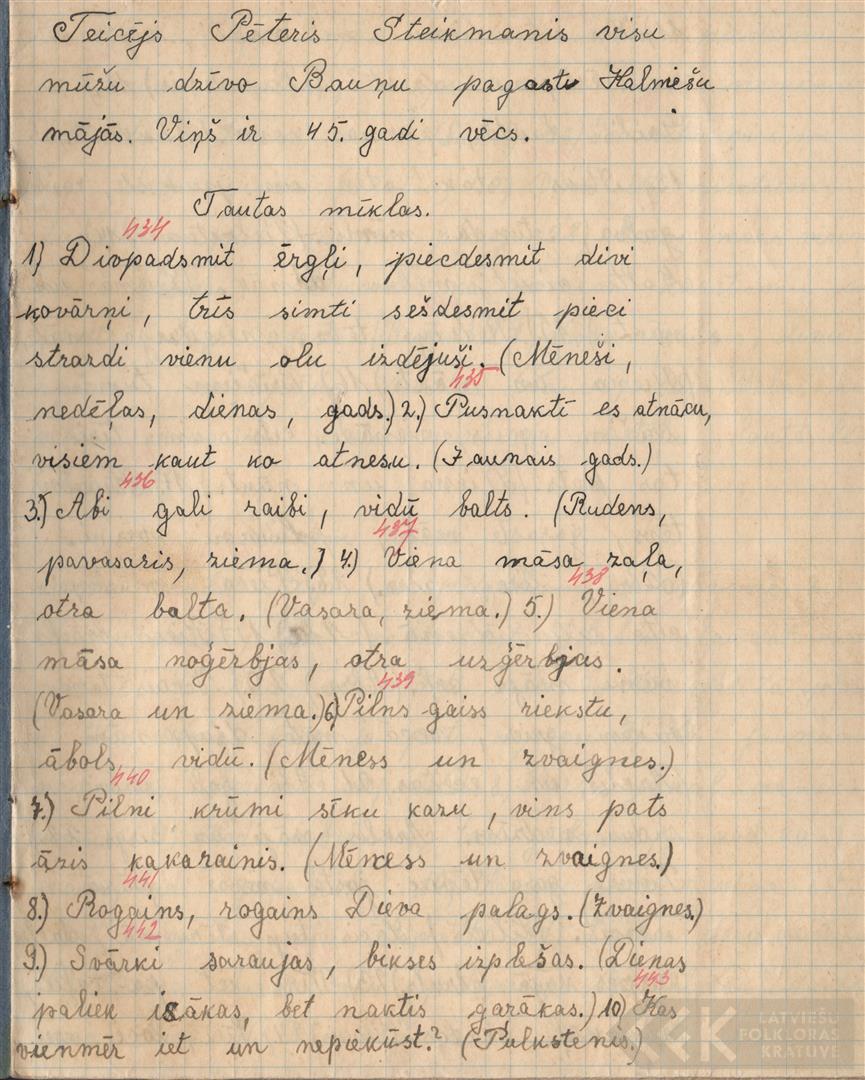 Teicējs Pēteris Steikmanis visu
mūžu dzīvo Bauņu pagastu Kalniešu
mājās. Viņš ir 45. gadi vēcs.
Tautas mīklas.
434
1) Divpadsmit ērgļi, piecdesmit divi
kovārņi, trīs simti sešdesmit pieci
strazdi vienu olu izdējuši. (Mēneši,
435
nedēļas, dienas, gads.) 2.) Pusnaktī es atnācu,
visiem kaut ko atnesu. (Jaunais gads.)
436
3.) Abi gali raibi, vidū balts. (Rudens,
437
pavasaris, ziema.) 4.) Viena māsa zaļa,
438
otra balta. (Vasara, ziema.) 5.) Viena
māsa noģērbjas, otra uzģērbjas.
439
(Vasara un ziema.) 6.) Pilns gaiss riekstu,
ābols vidū. (Mēness un zvaignes.)
440
7.) Pilni krūmi sīku kazu, vins pats
āzis kakarainis. (Mēness un zvaignes.)
441
8.) Rogains, rogains Dieva palags. (Zvaignes.)
442
9.) Svārki saraujas, bikses izplešas. (Dienas
443
paliek isākas, bet naktis garākas.) 10) Kas
vienmēr iet un nepiekūst? (Pulkstenis.)
LATVIEŠU
FOLKLORAS
KRĀTUVE